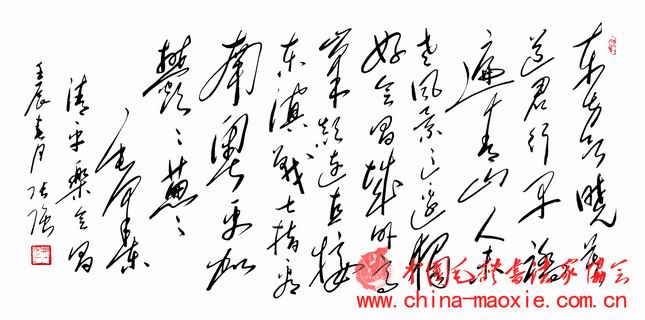 东方欲晓莫
道君行早踏
遍青山人未
老风景这边独
好会昌城外高
峰颠连直接
东溟战士指看
南粤更加
鬱〻葱〻
毛泽东
清平乐会昌
壬辰春月 张强
中国毛体书法家协会
www.china-maoxie.com.cn